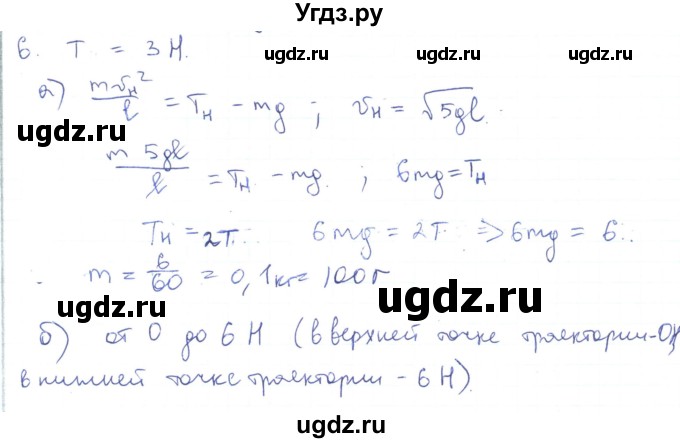 Угдз.ру
6. T = 3 Н.
ugdz.ru ugdz.ru
а) mvн²/l = Tн - mg ; vн = √5gl.
ugdz.ru
m 5gl/l = Tн - mg ; 6mg = Tн
ugdz.ru ugdz.ru
Tн = 2T. 6mg = 2T. => 6mg = 6..
m = 6/60 = 0,1кг = 100г
ugdz.ru ugdz.ru
б) от 0 до 6 Н (в верхней точке траектории - 0,
в нижней точке траектории - 6 Н).
ugdz.ru ugdz.ru
ugdz.ru